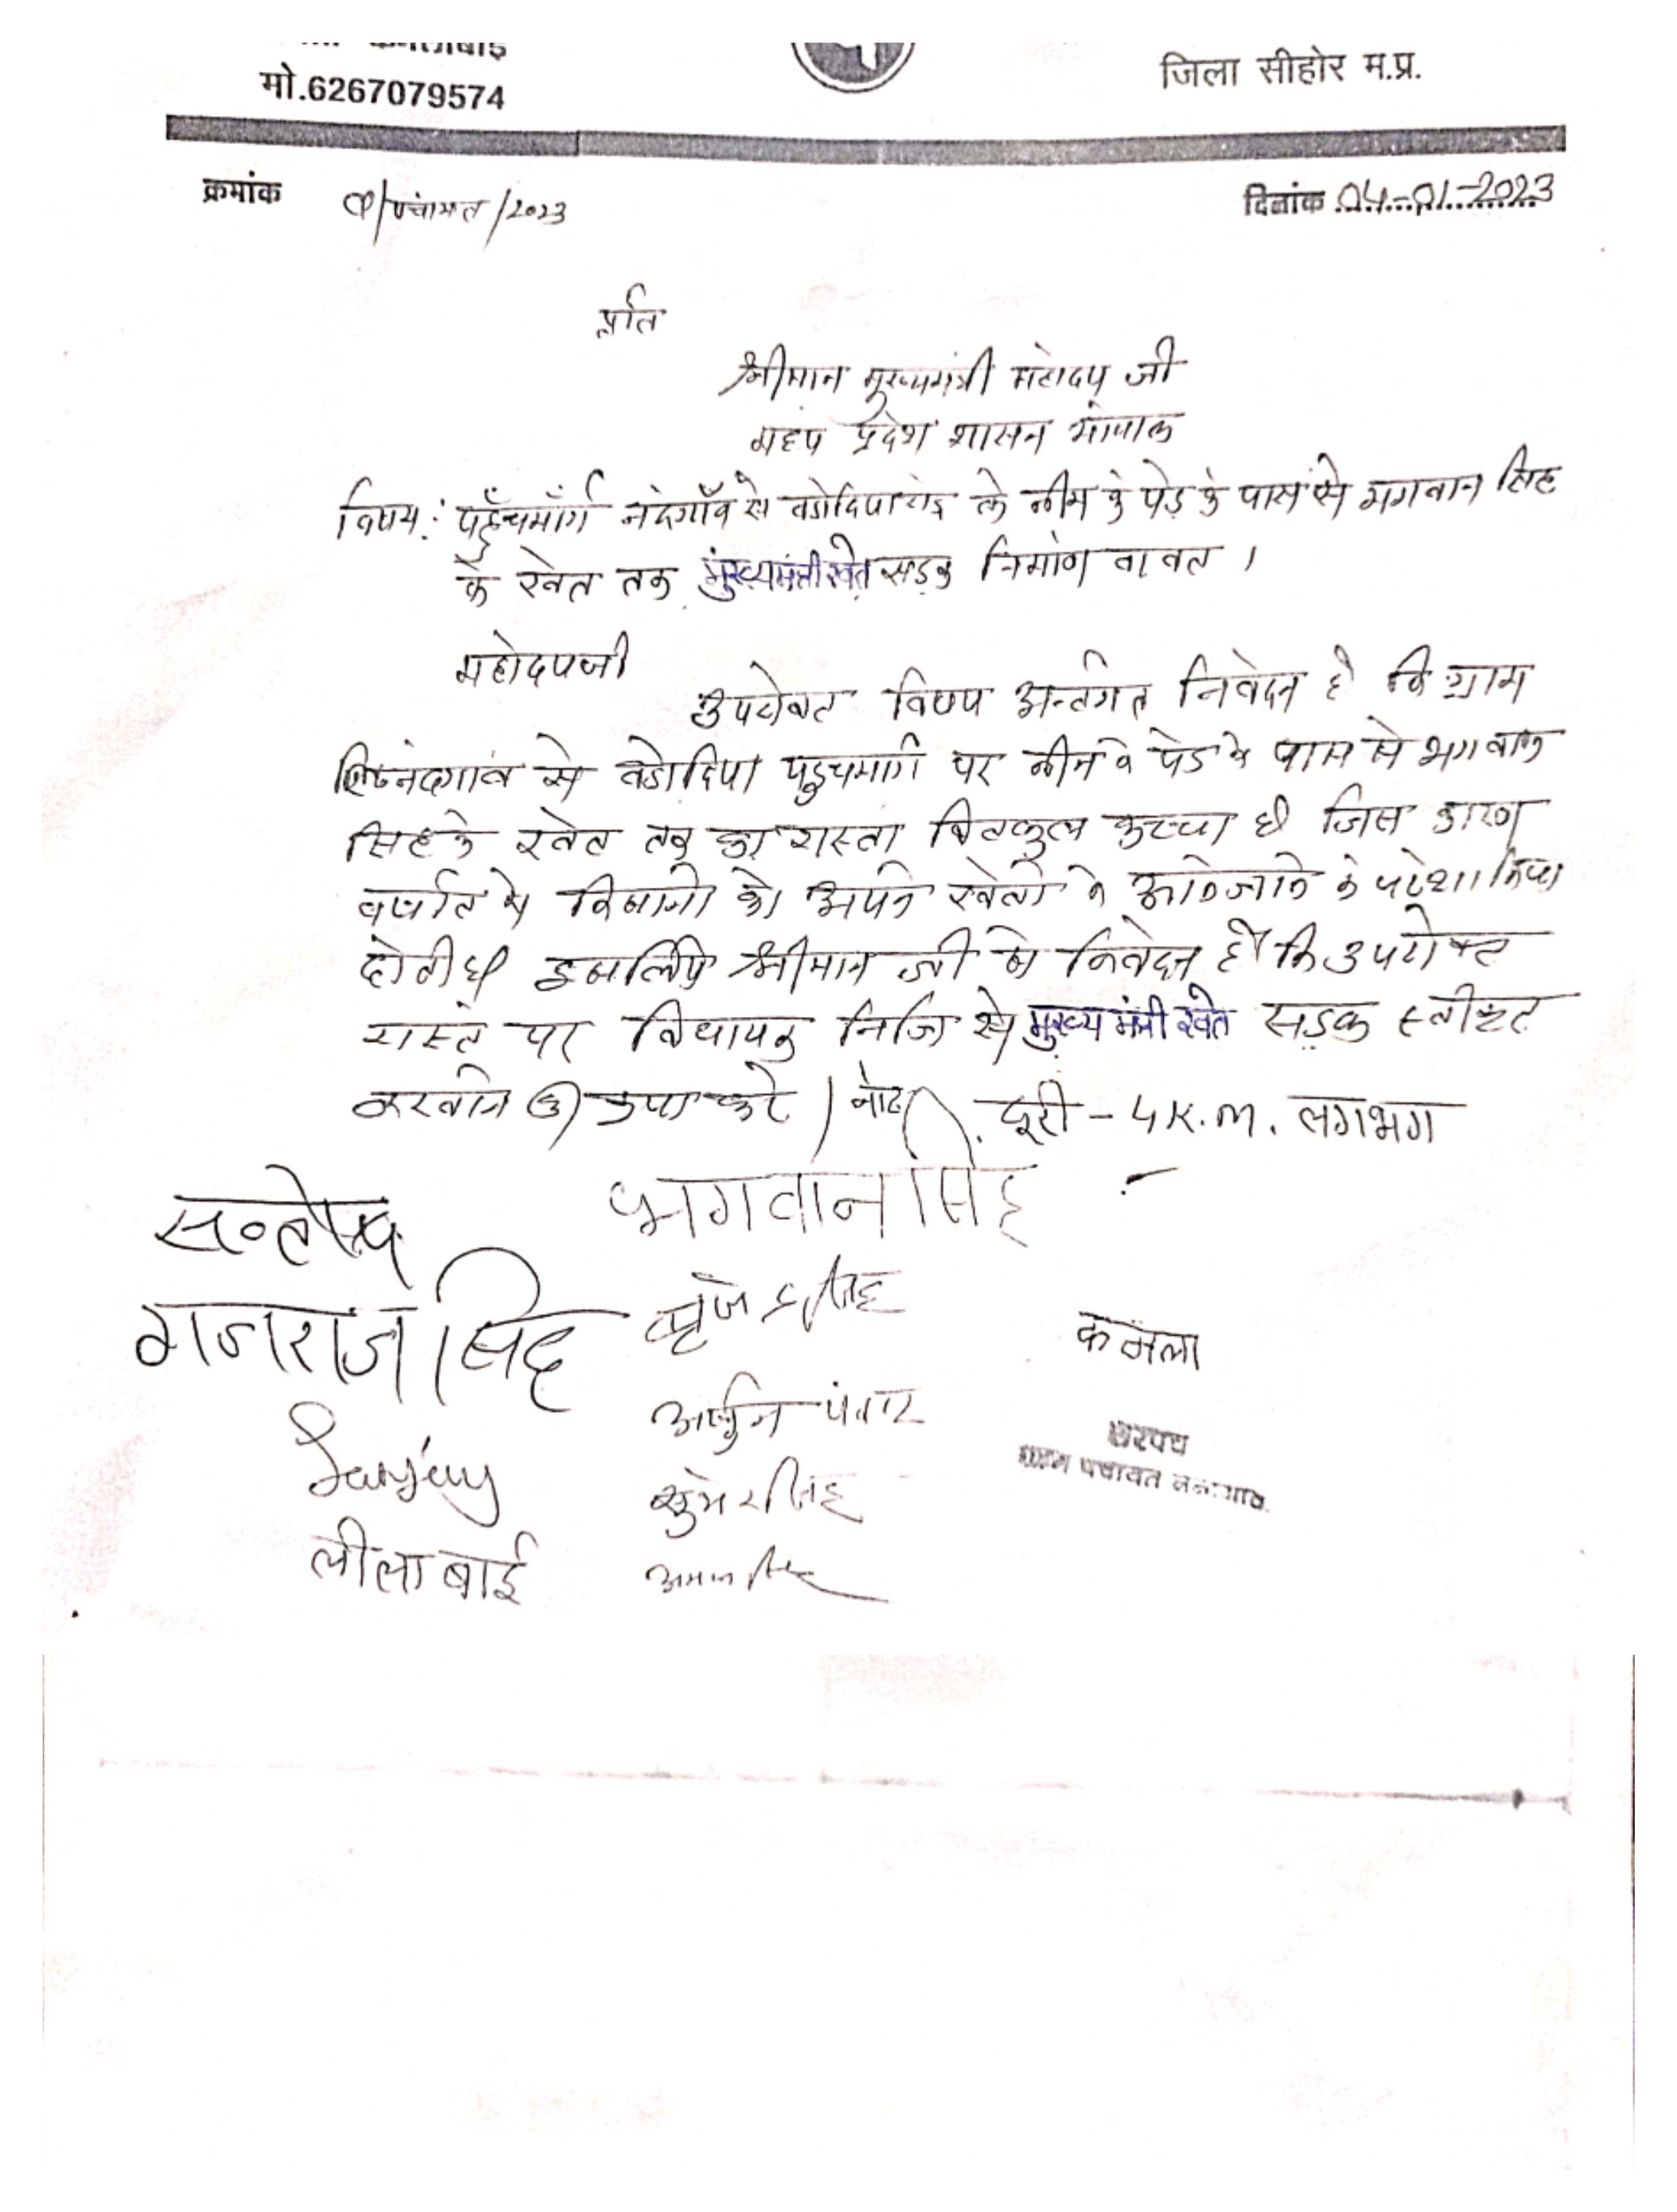 कमलाबाई
मो.6267079574
जिला सीहोर म.प्र.
क्रमांक /पंचायत/2023
दिनांक 04-01-2023
प्रति
श्रीमान मुख्यमंत्री महोदय जी
मध्य प्रदेश शासन भोपाल
विषय: पहुँचमार्ग नंदगाँव से वडोदिया रोड के नीम के पेड़ के पास से भगवान सिंह
के खेत तक मुख्यमंत्री खेत सड़क निर्माण वावत ।
महोदयजी
उपरोक्त विषय अन्तर्गत निवेदन है कि ग्राम
नंदगांव से वडोदिया पहुचमार्ग पर नीम के पेड के पास से भगवान
सिंह के खेत तक का रास्ता बिलकुल कच्चा है जिस कारण
वर्षात में किसानो को अपने खेतो में आने जाने में परेशानिया
होती है इसलिए श्रीमान जी से निवेदन है कि उपरोक्त
रास्ते पर विधायक निधि से मुख्यमंत्री खेत सड़क स्वीकृत
करवाने की कृपा करे / नोट दूरी - 4 K.m. लगभग
सन्तोष भगवानसिंह
गजराजसिंह
कमला
Sanjay अर्जुन पंवार
सरपंच
ग्राम पंचायत नन्दगांव
सुमेरसिंह
लीला बाई